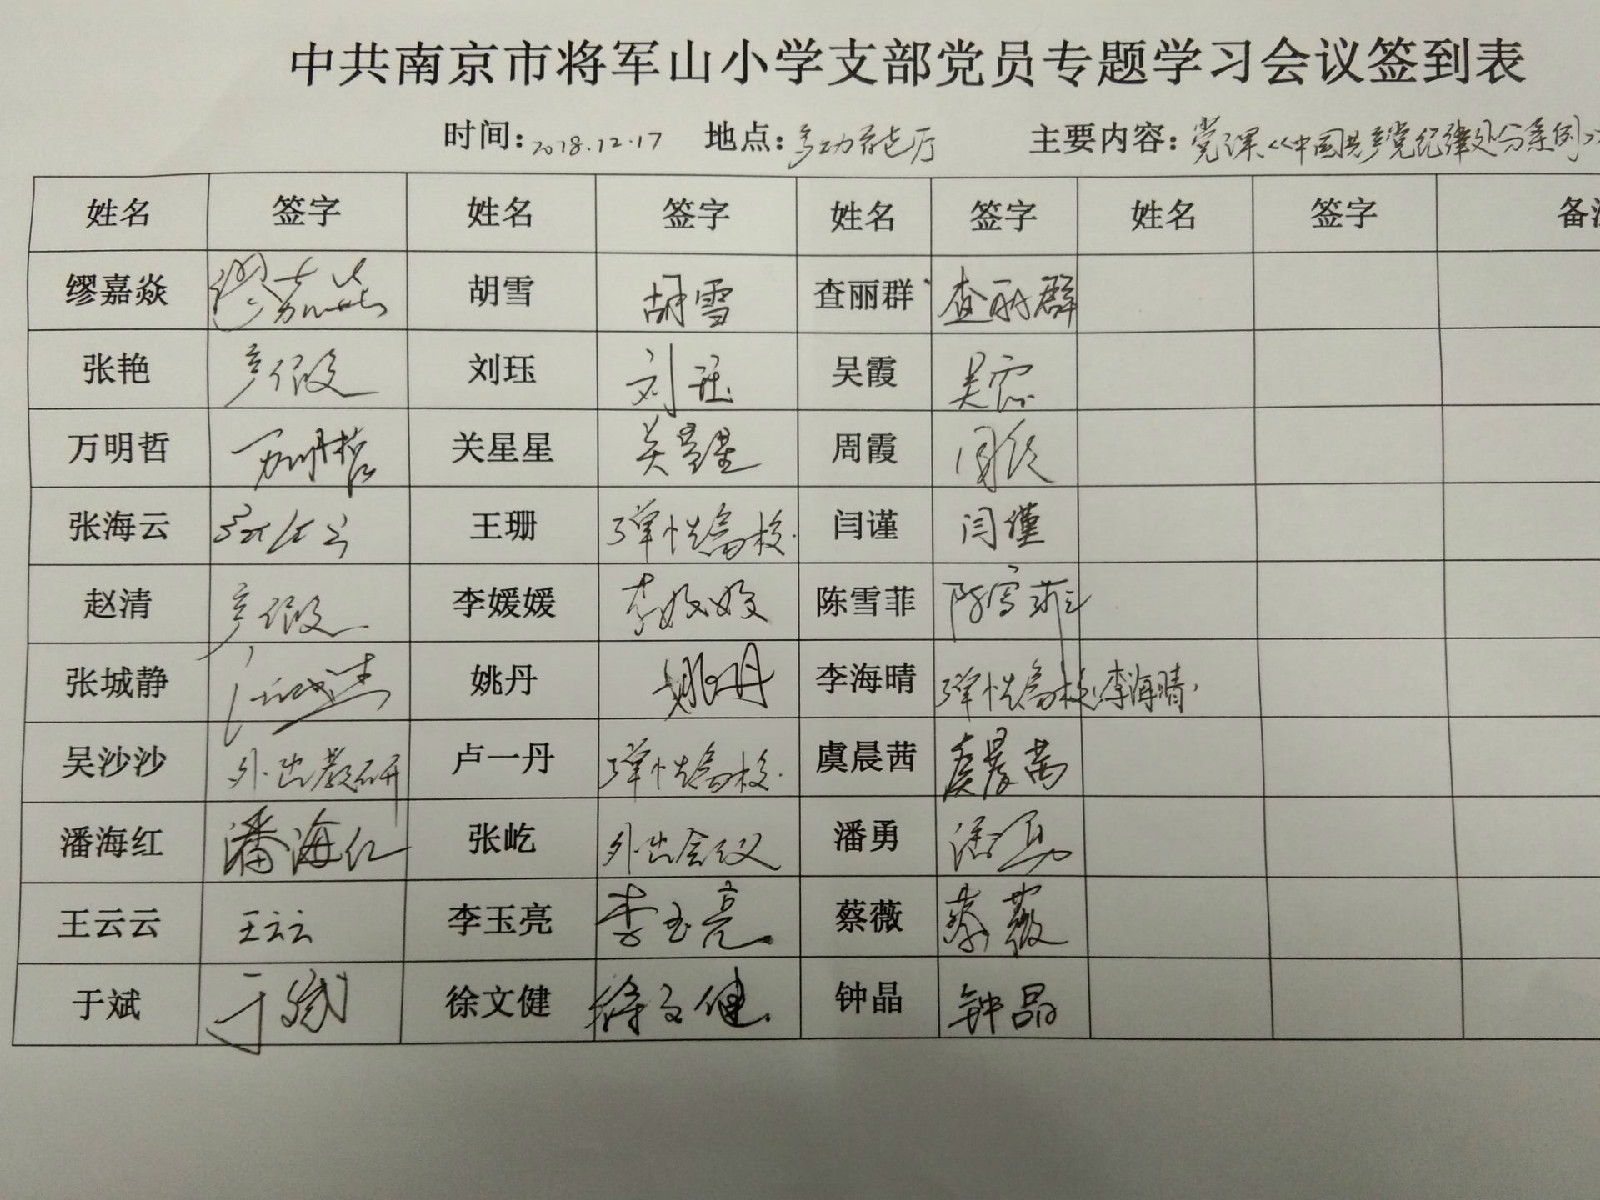 中共南京市将军山小学支部党员专题学习会议签到表
时间:2018.12.17 地点:多功能厅 主要内容:党课《中国共产党纪律处分条例》
姓名 签字 姓名 签字 姓名 签字 姓名 签字 备注
缪嘉焱 缪嘉焱 胡雪 胡雪 查丽群 查丽群
张艳 产假 刘珏 刘珏 吴霞 吴霞
万明哲 万明哲 关星星 关星星 周霞 周霞
张海云 张海云 王珊 弹性离校. 闫谨 闫谨
赵清 产假 李媛媛 李媛媛 陈雪菲 陈雪菲
张城静 张城静 姚丹 姚丹 李海晴 弹性离校 李海晴
吴沙沙 外出教研 卢一丹 弹性离校. 虞晨茜 虞晨茜
潘海红 潘海红 张屹 外出会议 潘勇 潘勇
王云云 王云云 李玉亮 李玉亮 蔡薇 蔡薇
于斌 于斌 徐文健 徐文健 钟晶 钟晶